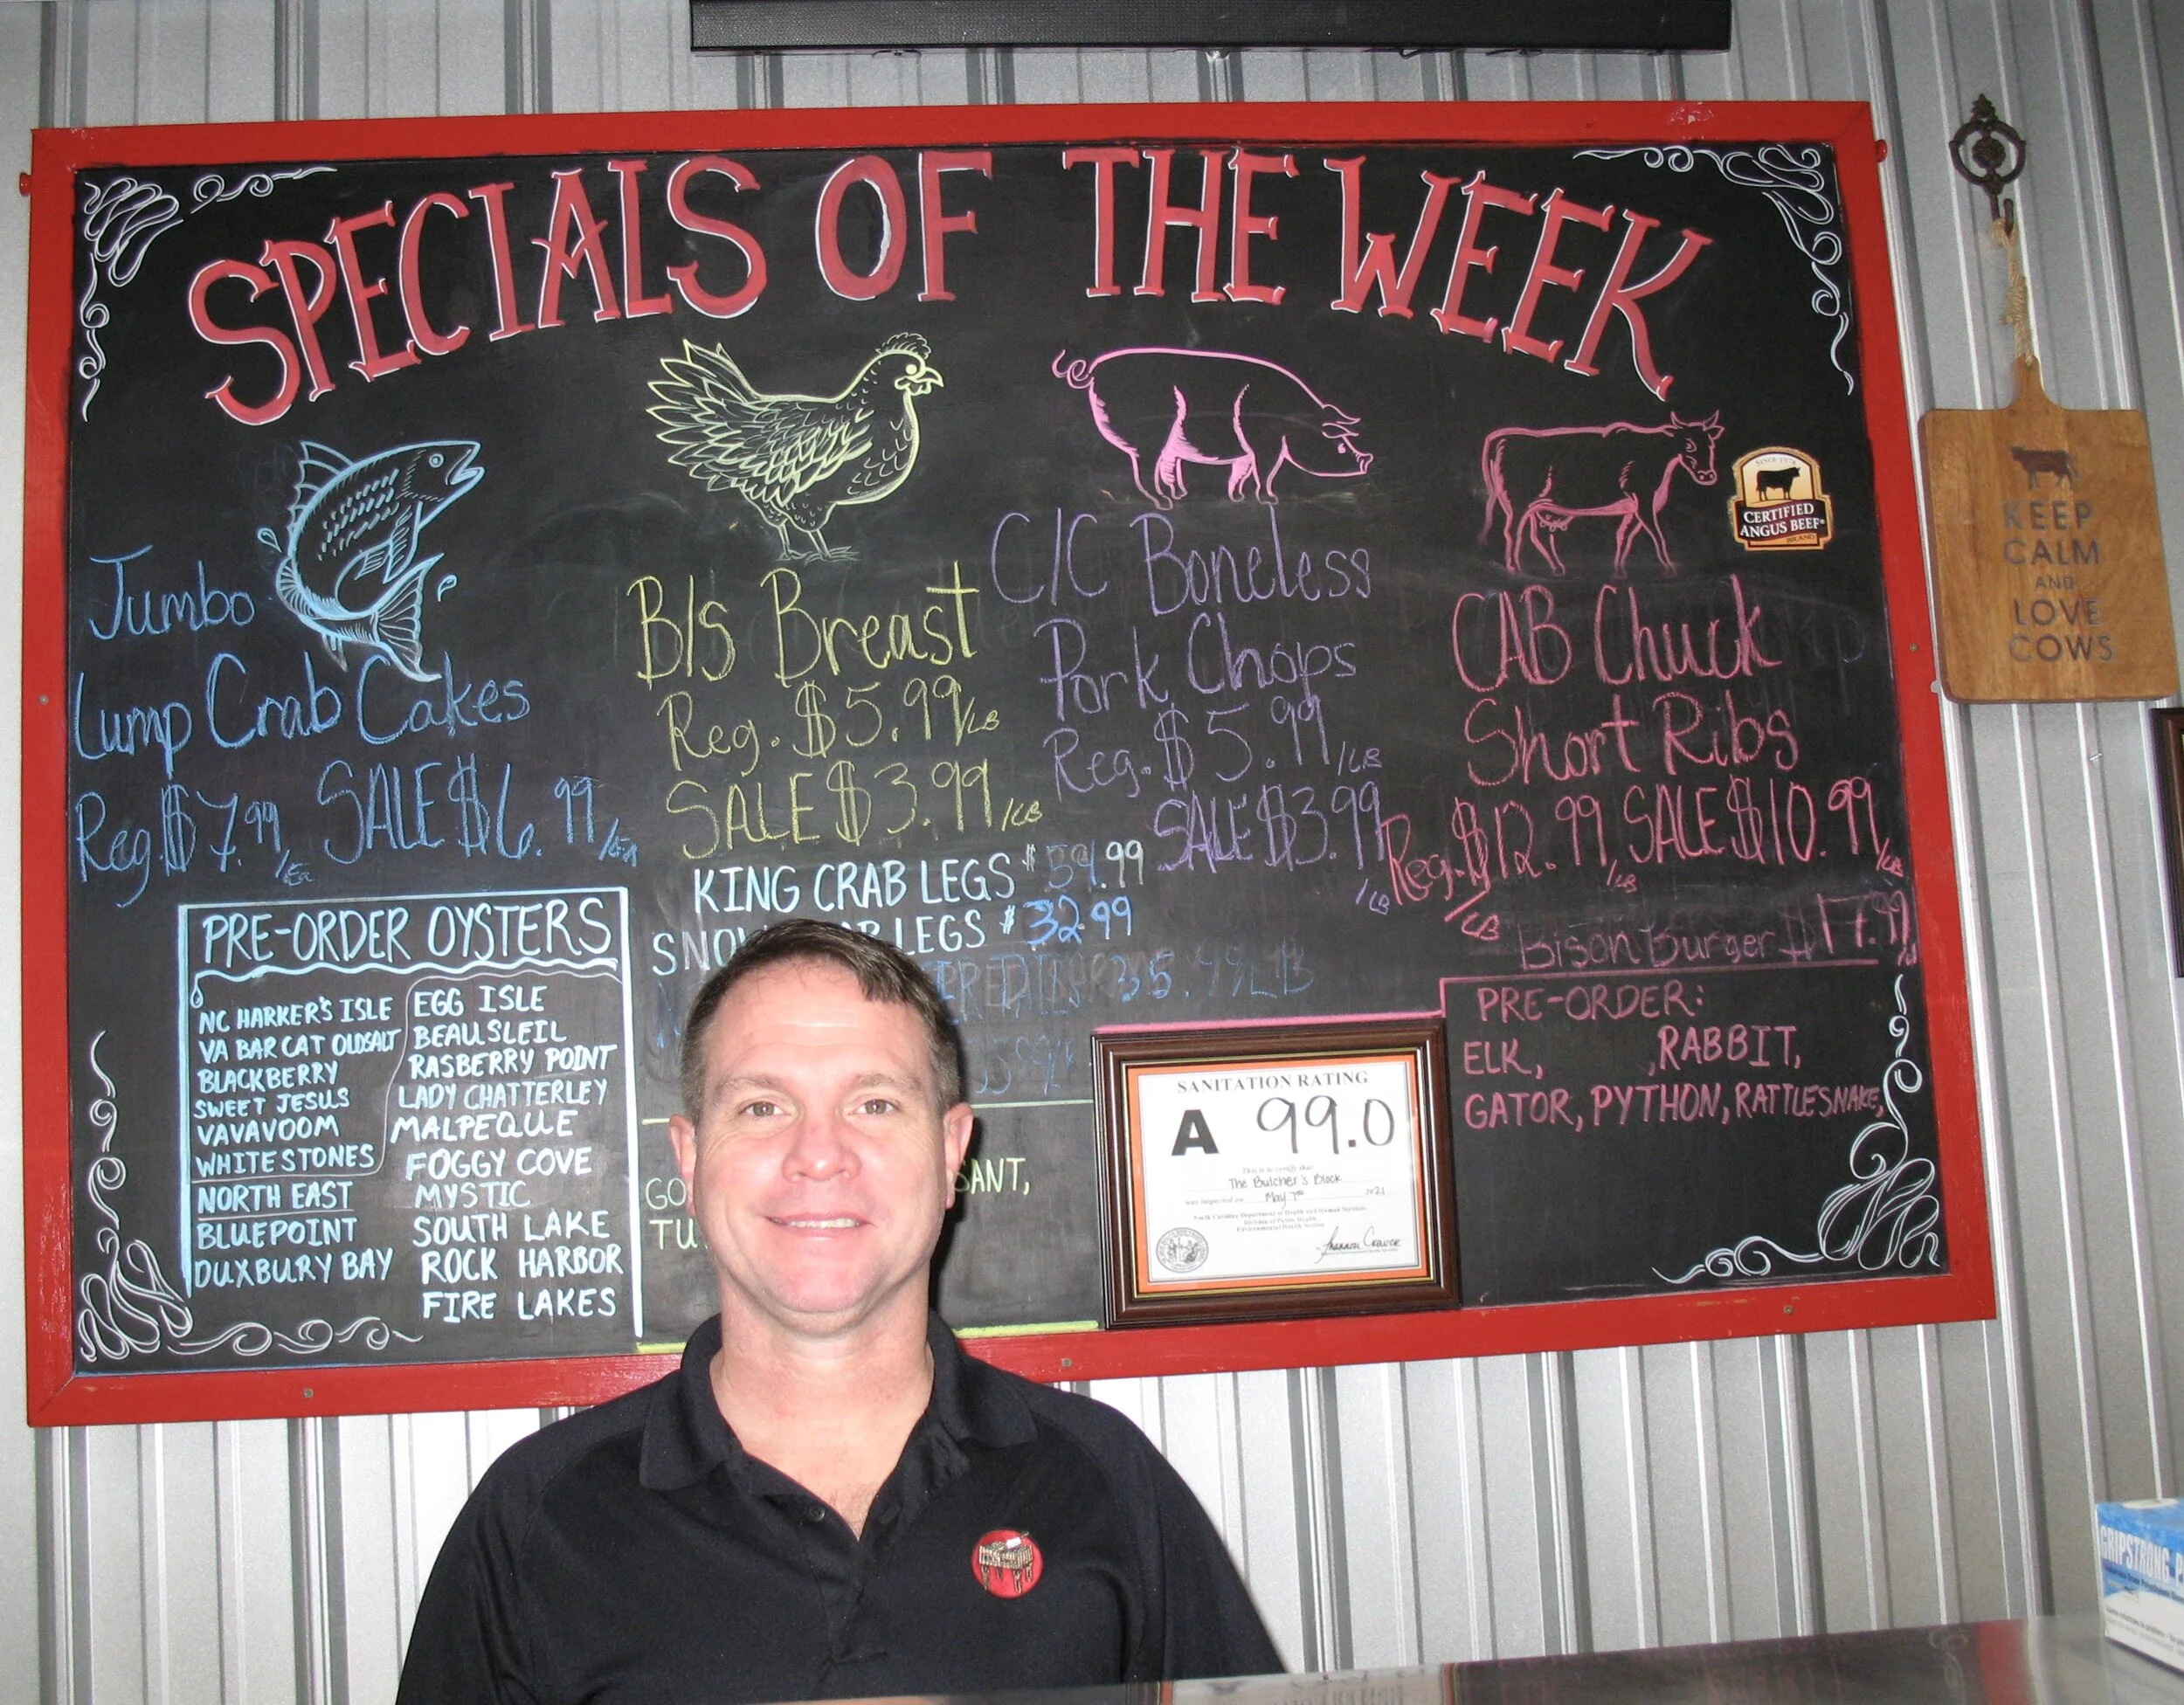 SPECIALS OF THE WEEK
Jumbo
Lump Crab Cakes
Reg $7.99/Ea SALE $6.99/EA
B/S Breast
Reg. $5.99/LB
SALE $3.99/LB
C/C Boneless
Pork Chops
Reg. $5.99/LB
SALE $3.99
/LB
SINCE 1978
CERTIFIED
ANGUS BEEF®
BRAND
CAB Chuck
Short Ribs
Reg. $12.99/LB SALE $10.99/LB
/LB
Bison Burger $17.99
KING CRAB LEGS $59.99
LEGS $32.99
35.99 LB
PRE-ORDER OYSTERS
NC HARKER'S ISLE
VA BAR CAT OLDSALT
BLACKBERRY
SWEET JESUS
VAVAVOOM
WHITESTONES
NORTH EAST
BLUEPOINT
DUXBURY BAY
EGG ISLE
BEAUSLEIL
RASBERRY POINT
LADY CHATTERLEY
MALPEQUE
FOGGY COVE
MYSTIC
SOUTH LAKE
ROCK HARBOR
FIRE LAKES
PRE-ORDER:
ELK, ,RABBIT,
GATOR, PYTHON, RATTLESNAKE,
SANITATION RATING
A 99.0
This is to certify that
The Butcher's Block
was inspected on May 7th 2021
North Carolina Department of Health and Human Services
Division of Public Health
Environmental Health Section
KEEP
CALM
AND
LOVE
COWS
GRIPSTRONG